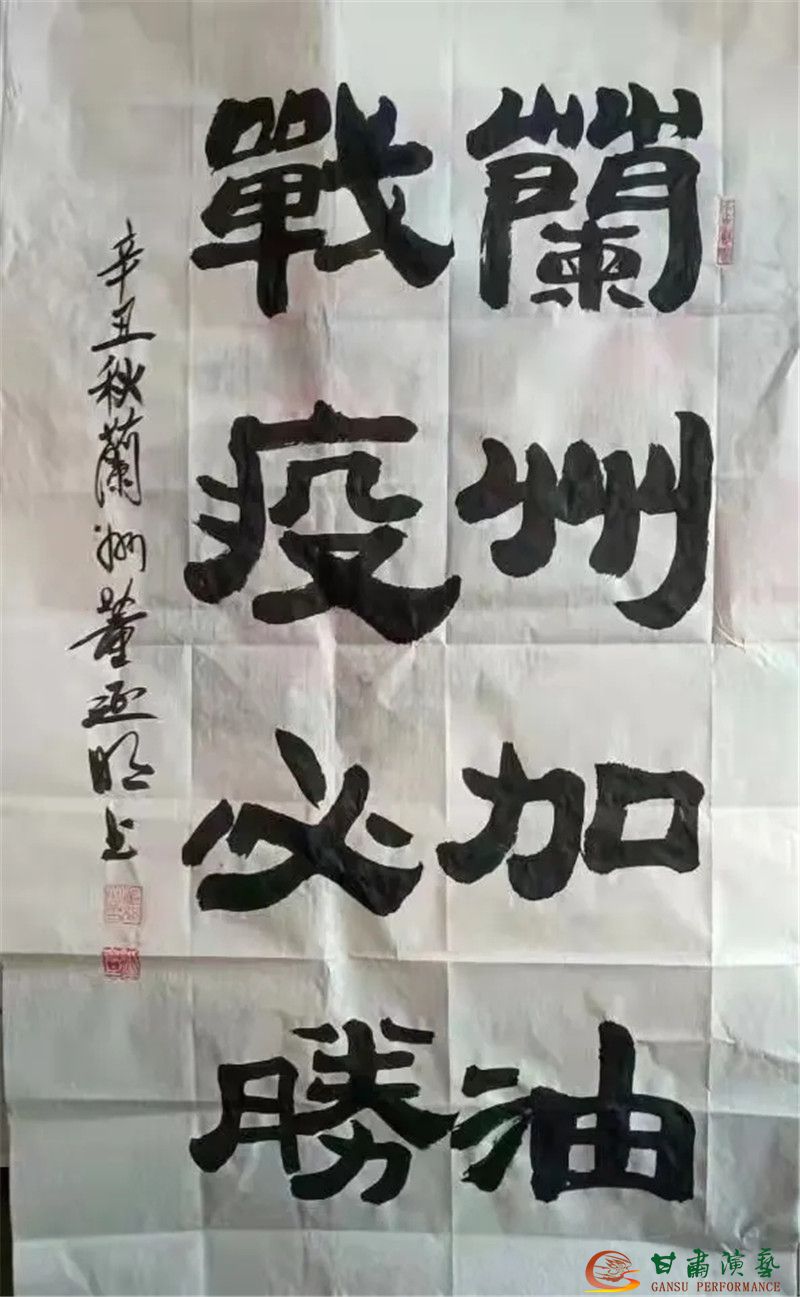 蘭州加油
戰疫必勝
辛丑秋蘭州董延明上
甘肅演藝
GANSU PERFORMANCE